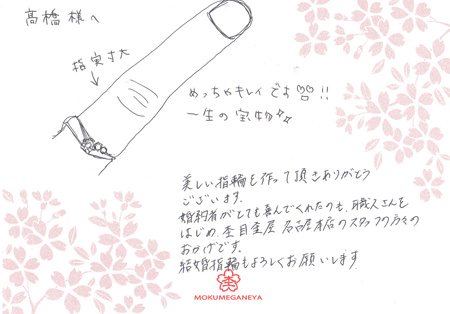 高橋様へ
指実寸大
めっちゃキレイです!!
一生の宝物
美しい指輪を作って頂きありがとう
ございます。
婚約者がとても喜んでくれたのも、職人さんを
はじめ、杢目金屋 名古屋本店のスタッフの方々の
おかげです。
結婚指輪もよろしくお願いします
MOKUMEGANEYA